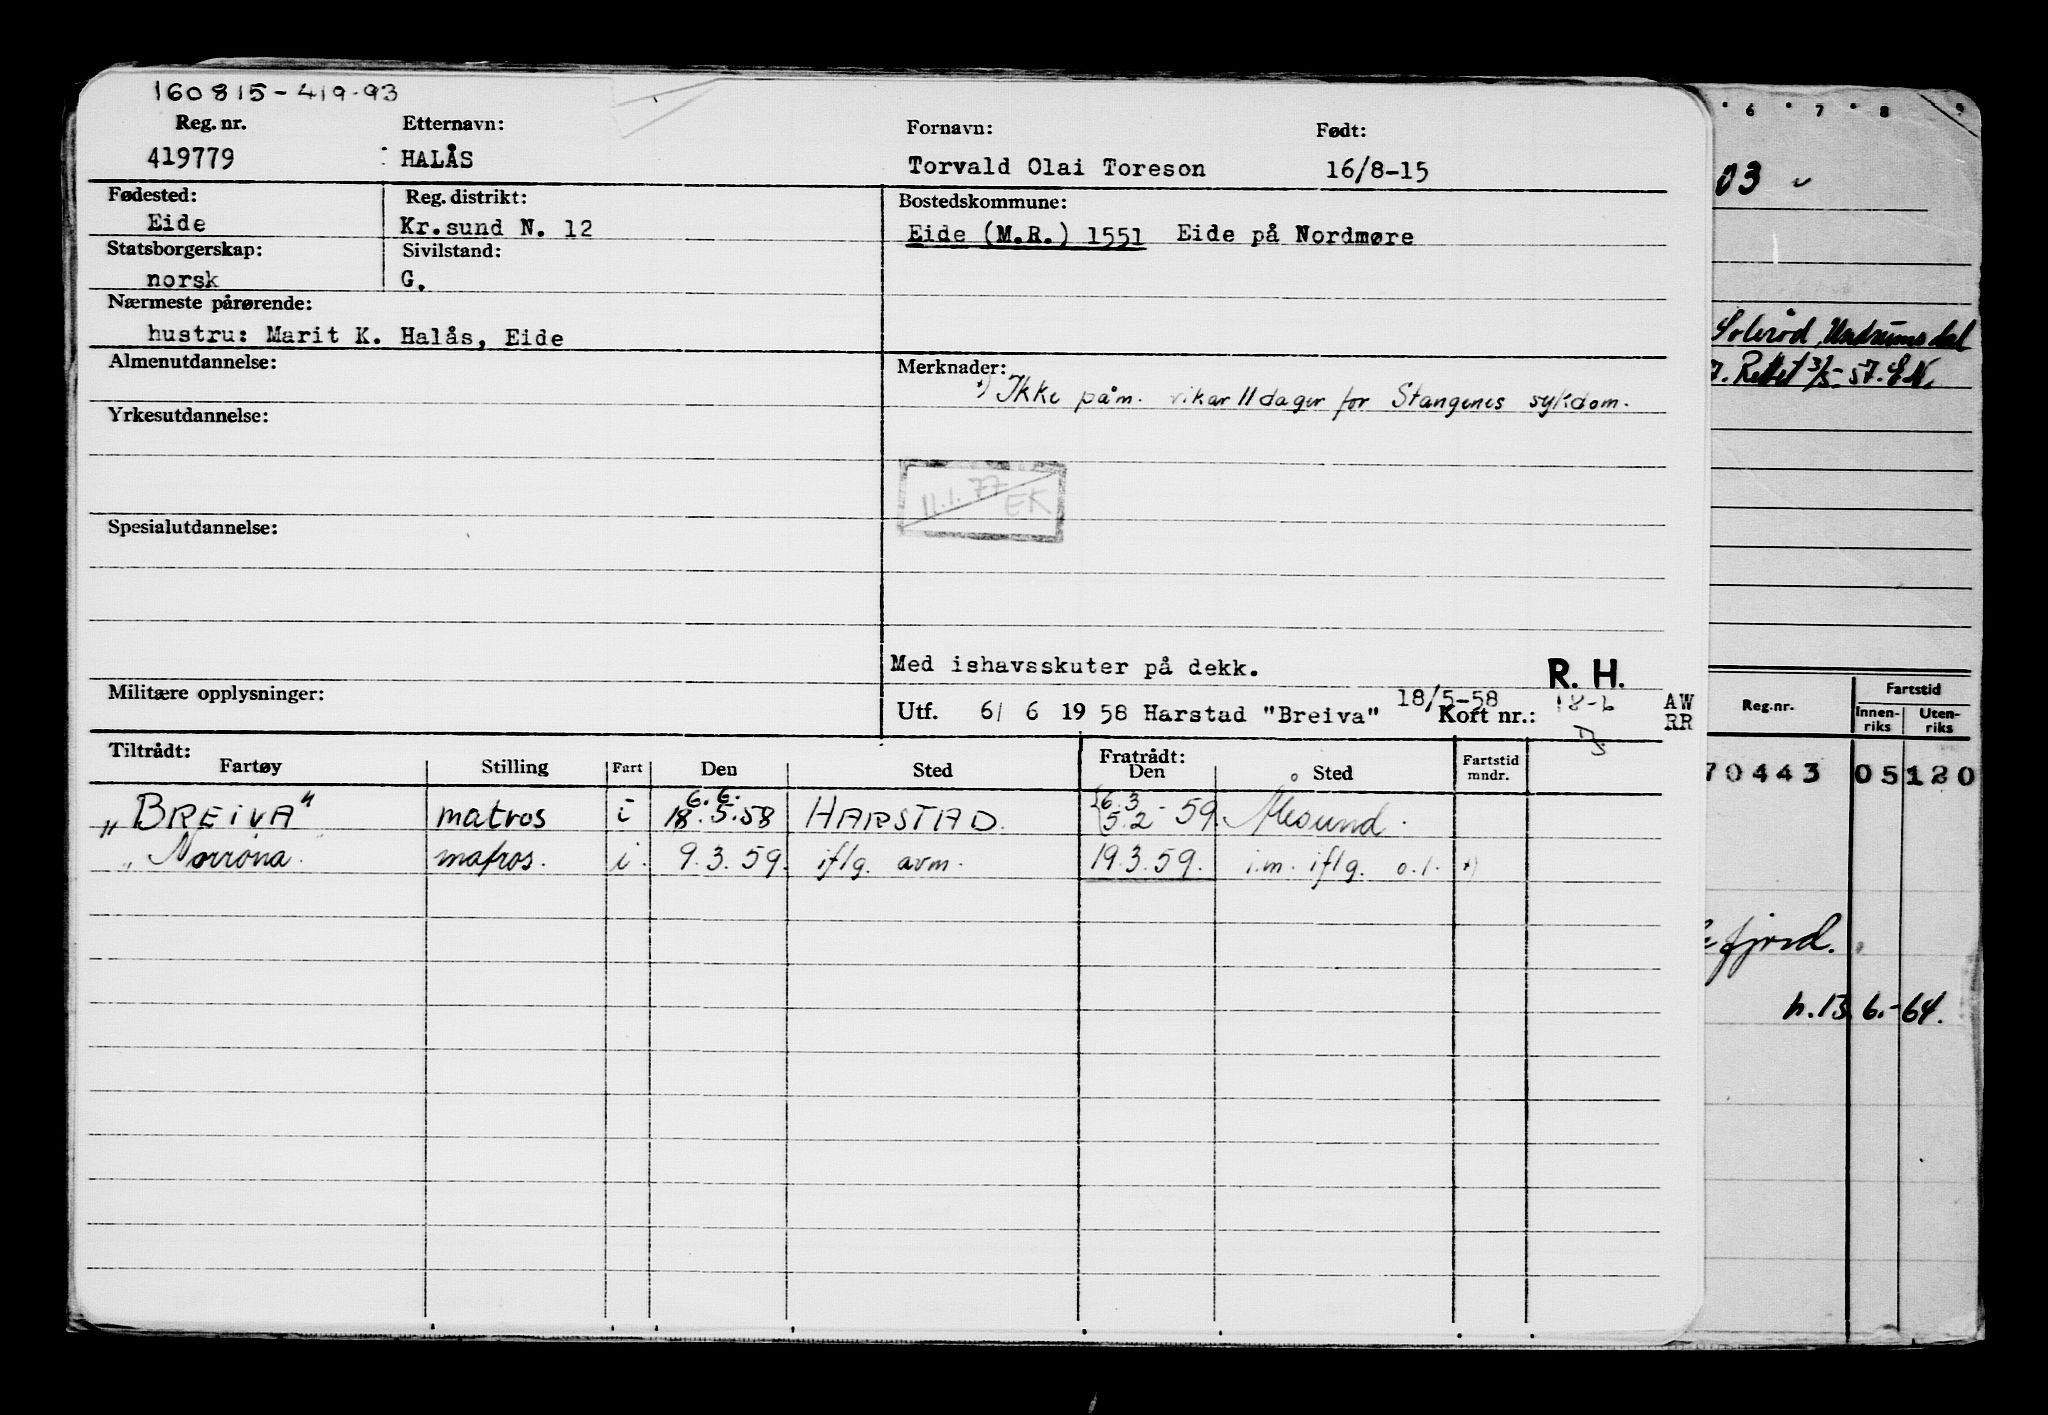 160815-419-93
Reg. nr. Etternavn: Fornavn: Født:
419779 HALÅS Torvald Olai Toreson 16/8-15
Fødested: Reg. distrikt: Bostedskommune:
Eide Kr.sund N. 12 Eide (M.R.) 1551 Eide på Nordmøre
Statsborgerskap: Sivilstand:
norsk G.
Nærmeste pårørende:
hustru: Marit K. Halås, Eide
Almenutdannelse: Merknader:
*) Ikke påm. vikar 11 dager for Stangenes sykdom.
Yrkesutdannelse:
11.1.77 EK
Spesialutdannelse:
Med ishavsskuter på dekk. R. H.
Militære opplysninger:
18/5-58 18-6 AW
Utf. 6/ 6 19 58 Harstad "Breiva" Kort nr.: RR
Tiltrådt: Fratrådt:
Fartøy Stilling Fart Den Sted Den Sted Fartstid mndr.
6.6. 6.3
"BREIVA" matros i 18.5.58 HARSTAD. 5.2-59. Ålesund.
"Norrøna. matros. i. 9.3.59. iflg. avm. 19.3.59. i.m. iflg. o.l. *)
6 7 8 9
03
Solerød, Undrumsdal
7. Rettet 3/5-57. E.N.
Reg.nr. Fartstid
Innen-riks Uten-riks
70443 05120
fjord.
h. 13.6.-64.